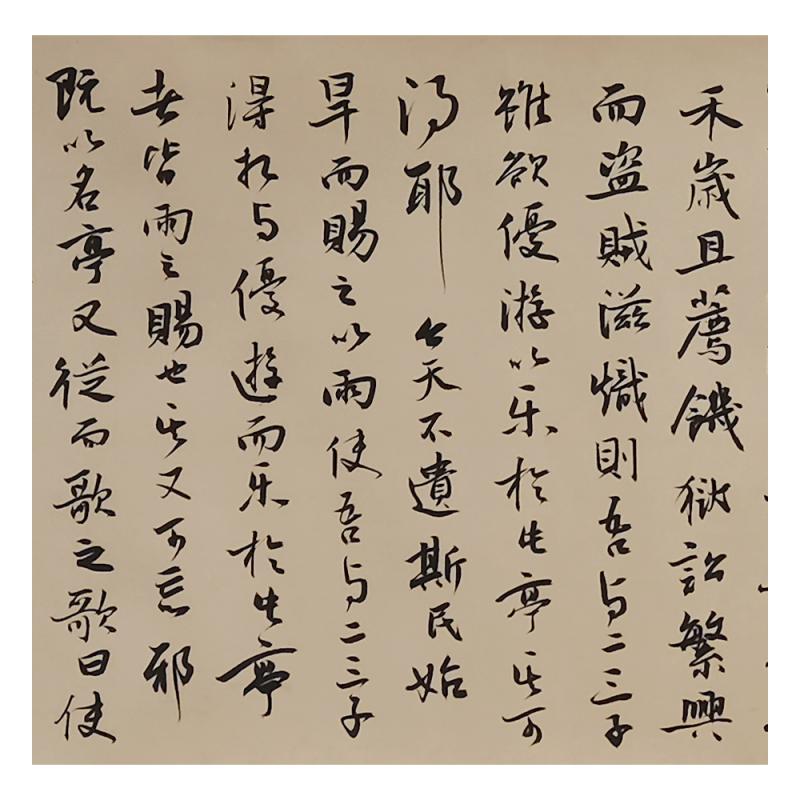 禾歲且薦饑獄訟繁興
而盜賊滋熾則吾与二三子
雖欲優游以乐於此亭其可
得耶今天不遺斯民始
旱而賜之以雨使吾与二三子
得相与優遊而乐於此亭
者皆雨之賜也其又可忘邪
既以名亭又從而歌之歌曰使